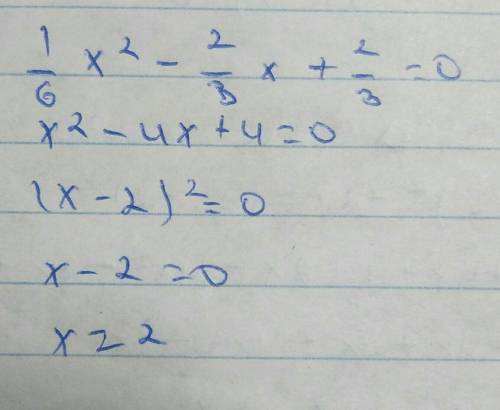 1/6 x² - 2/3 x + 2/3 = 0
x² - 4x + 4 = 0
(x - 2)² = 0
x - 2 = 0
x = 2